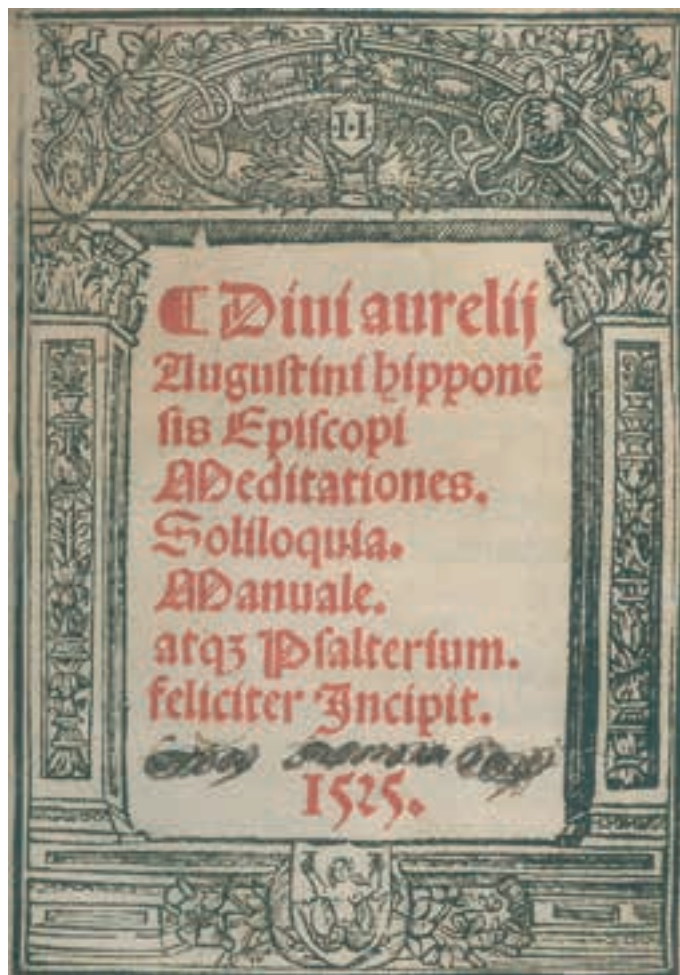 ·I·I·
¶ Diui aurelij
Augustini hipponẽ
sis Episcopi
Meditationes.
Soliloquia.
Manuale.
atqꝫ Psalterium.
feliciter Incipit.
1525.